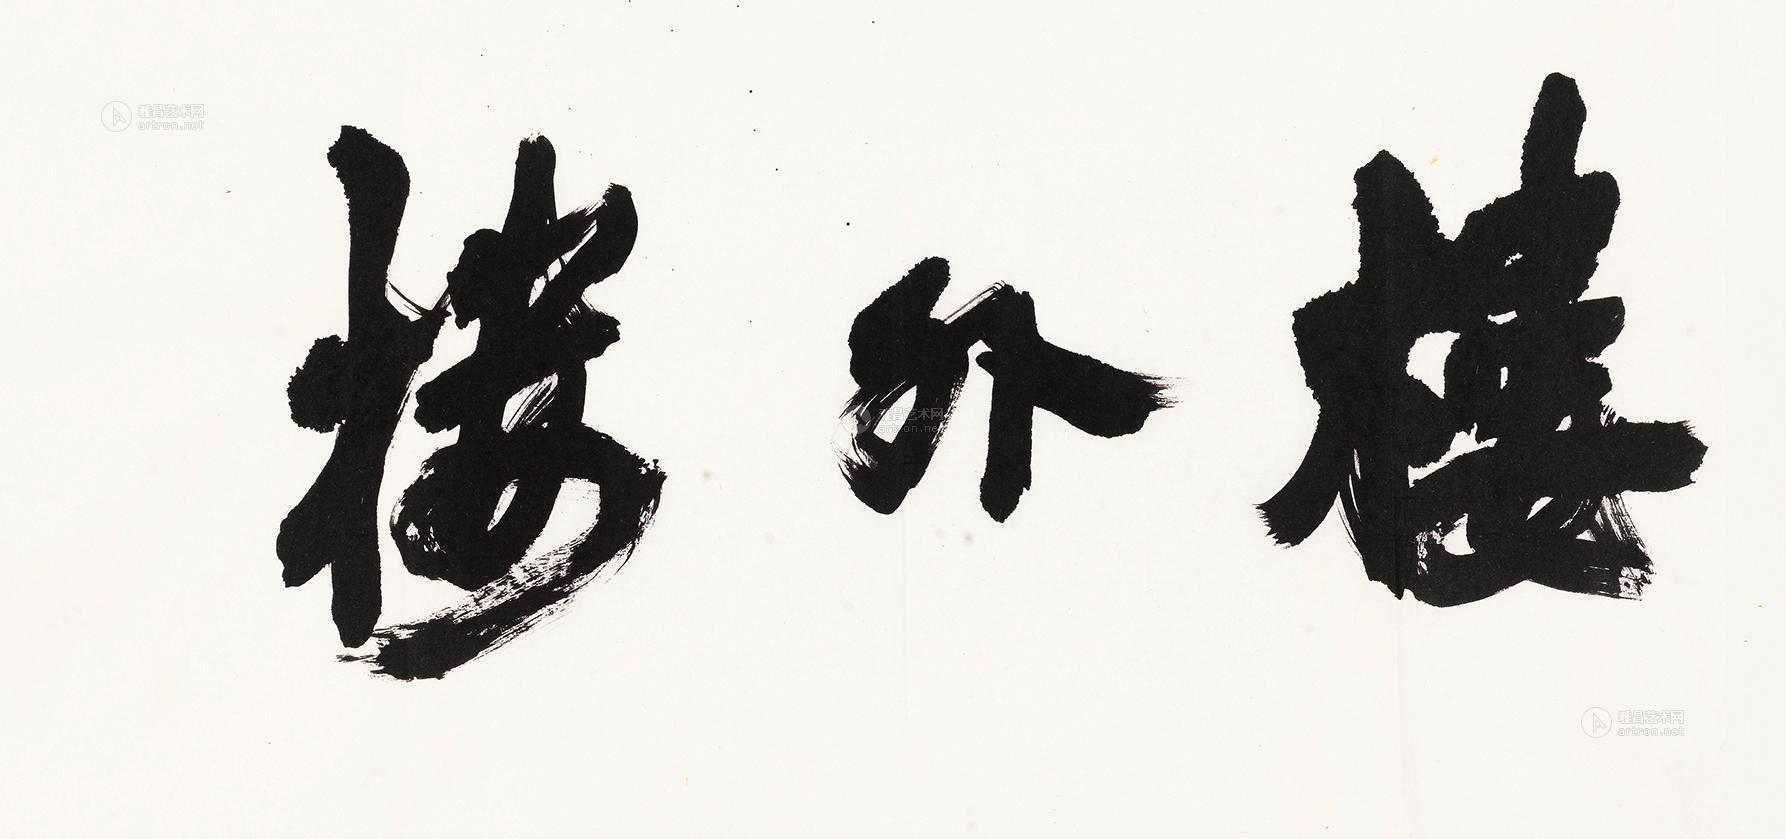 樓外樓
雅昌艺术网
artron.net
雅昌艺术网
artron.net
雅昌艺术网
artron.net